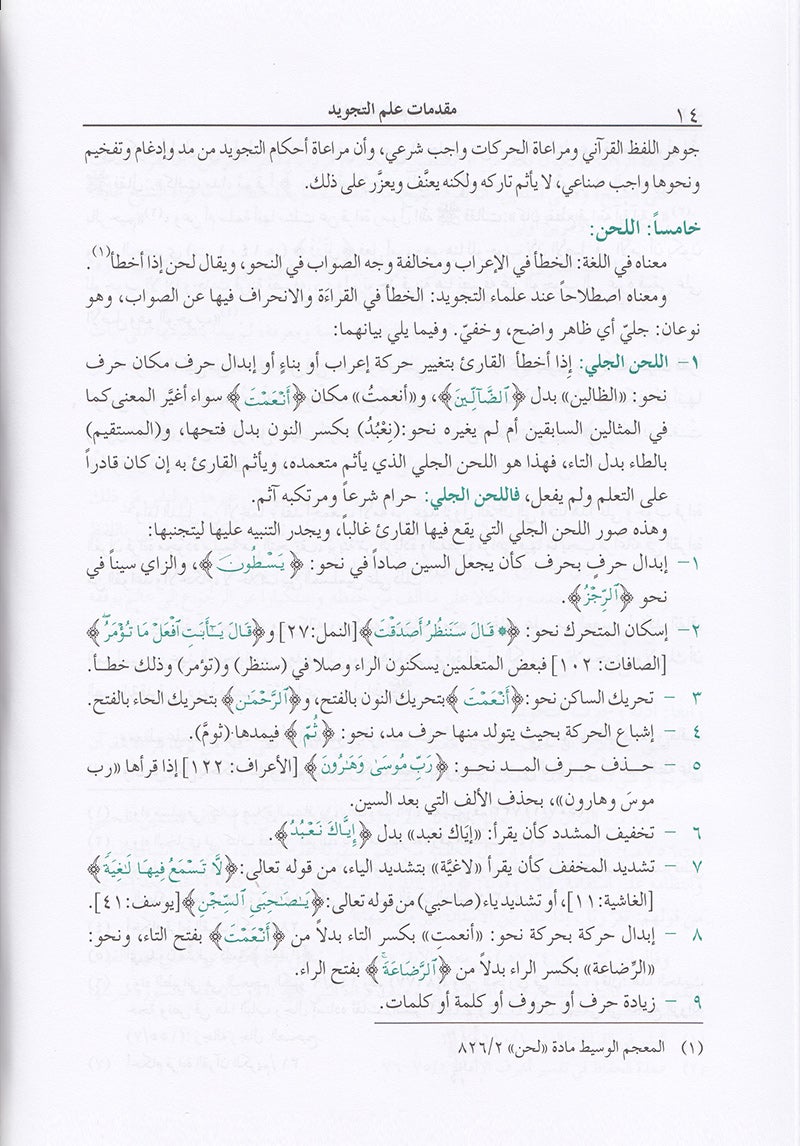 ١٤
مقدمات علم التجويد
جوهر اللفظ القرآني ومراعاة الحركات واجب شرعي، وأن مراعاة أحكام التجويد من مد وإدغام وتفخيم
ونحوها واجب صناعي، لا يأثم تاركه ولكنه يعنَّف ويعزَّر على ذلك.
خامساً: اللحن:
معناه في اللغة: الخطأ في الإعراب ومخالفة وجه الصواب في النحو، ويقال لحن إذا أخطأ(١).
ومعناه اصطلاحاً عند علماء التجويد: الخطأ في القراءة والانحراف فيها عن الصواب، وهو
نوعان: جليّ أي ظاهر واضح، وخفيّ. وفيما يلي بيانهما:
١- اللحن الجلي: إذا أخطأ القارئ بتغيير حركة إعراب أو بناءٍ أو إبدال حرف مكان حرف
نحو: «الظالين» بدل ﴿ٱلضَّآلِّينَ﴾، و«أنعمتُ» مكان ﴿أَنْعَمْتَ﴾ سواء أغيَّر المعنى كما
في المثالين السابقين أم لم يغيره نحو:(نِعْبُدُ) بكسر النون بدل فتحها، و(المسقيم)
بالطاء بدل التاء، فهذا هو اللحن الجلي الذي يأثم متعمده، ويأثم القارئ به إن كان قادراً
على التعلم ولم يفعل، فاللحن الجلي: حرام شرعاً ومرتكبه آثم.
وهذه صور اللحن الجلي التي يقع فيها القارئ غالباً، ويجدر التنبيه عليها ليتجنبها:
١- إبدال حرفٍ بحرف كأن يجعل السين صاداً في نحو: ﴿يَسْطُونَ﴾، والزاي سيناً في
نحو ﴿ٱلرِّجْزُ﴾.
٢- إسكان المتحرك نحو: ﴿۞ قَالَ سَنَنظُرُ أَصَدَقْتَ﴾[النمل:٢٧] و﴿قَالَ يَٰٓأَبَتِ ٱفْعَلْ مَا تُؤْمَرُۖ﴾
[الصافات: ١٠٢] فبعض المتعلمين يسكنون الراء وصلا في (سننظر) و(تؤمر) وذلك خطأ.
٣ - تحريك الساكن نحو:﴿أَنْعَمْتَ﴾بتحريك النون بالفتح، و﴿ٱلرَّحْمَٰنِ﴾بتحريك الحاء بالفتح.
٤ - إشباع الحركة بحيث يتولد منها حرف مد، نحو: ﴿ثُمَّ﴾ فيمدها.(ثومَّ).
٥ - حذف حرف المد نحو: ﴿رَبِّ مُوسَىٰ وَهَٰرُونَ﴾ [الأعراف: ١٢٢] إذا قرأها «رب
موسَ وهارون»، بحذف الألف التي بعد السين.
٦ - تخفيف المشدد كأن يقرأ: «إيَاك نعبد» بدل ﴿إِيَّاكَ نَعْبُدُ﴾.
٧ - تشديد المخفف كأن يقرأ «لاغيَّة» بتشديد الياء، من قوله تعالى:﴿لَّا تَسْمَعُ فِيهَا لَٰغِيَةً﴾
[الغاشية:١١]، أو تشديد ياء (صاحبي) من قوله تعالى:﴿يَٰصَٰحِبَيِ ٱلسِّجْنِ﴾[يوسف:٤١].
٨ - إبدال حركة بحركة نحو: «أنعمتِ» بكسر التاء بدلاً من ﴿أَنْعَمْتَ﴾ بفتح التاء، ونحو:
«الرِّضاعة» بكسر الراء بدلاً من ﴿ٱلرَّضَاعَةَۚ﴾ بفتح الراء.
٩ - زيادة حرف أو حروف أو كلمة أو كلمات.
(١) المعجم الوسيط مادة «لحن» ٨٢٦/٢